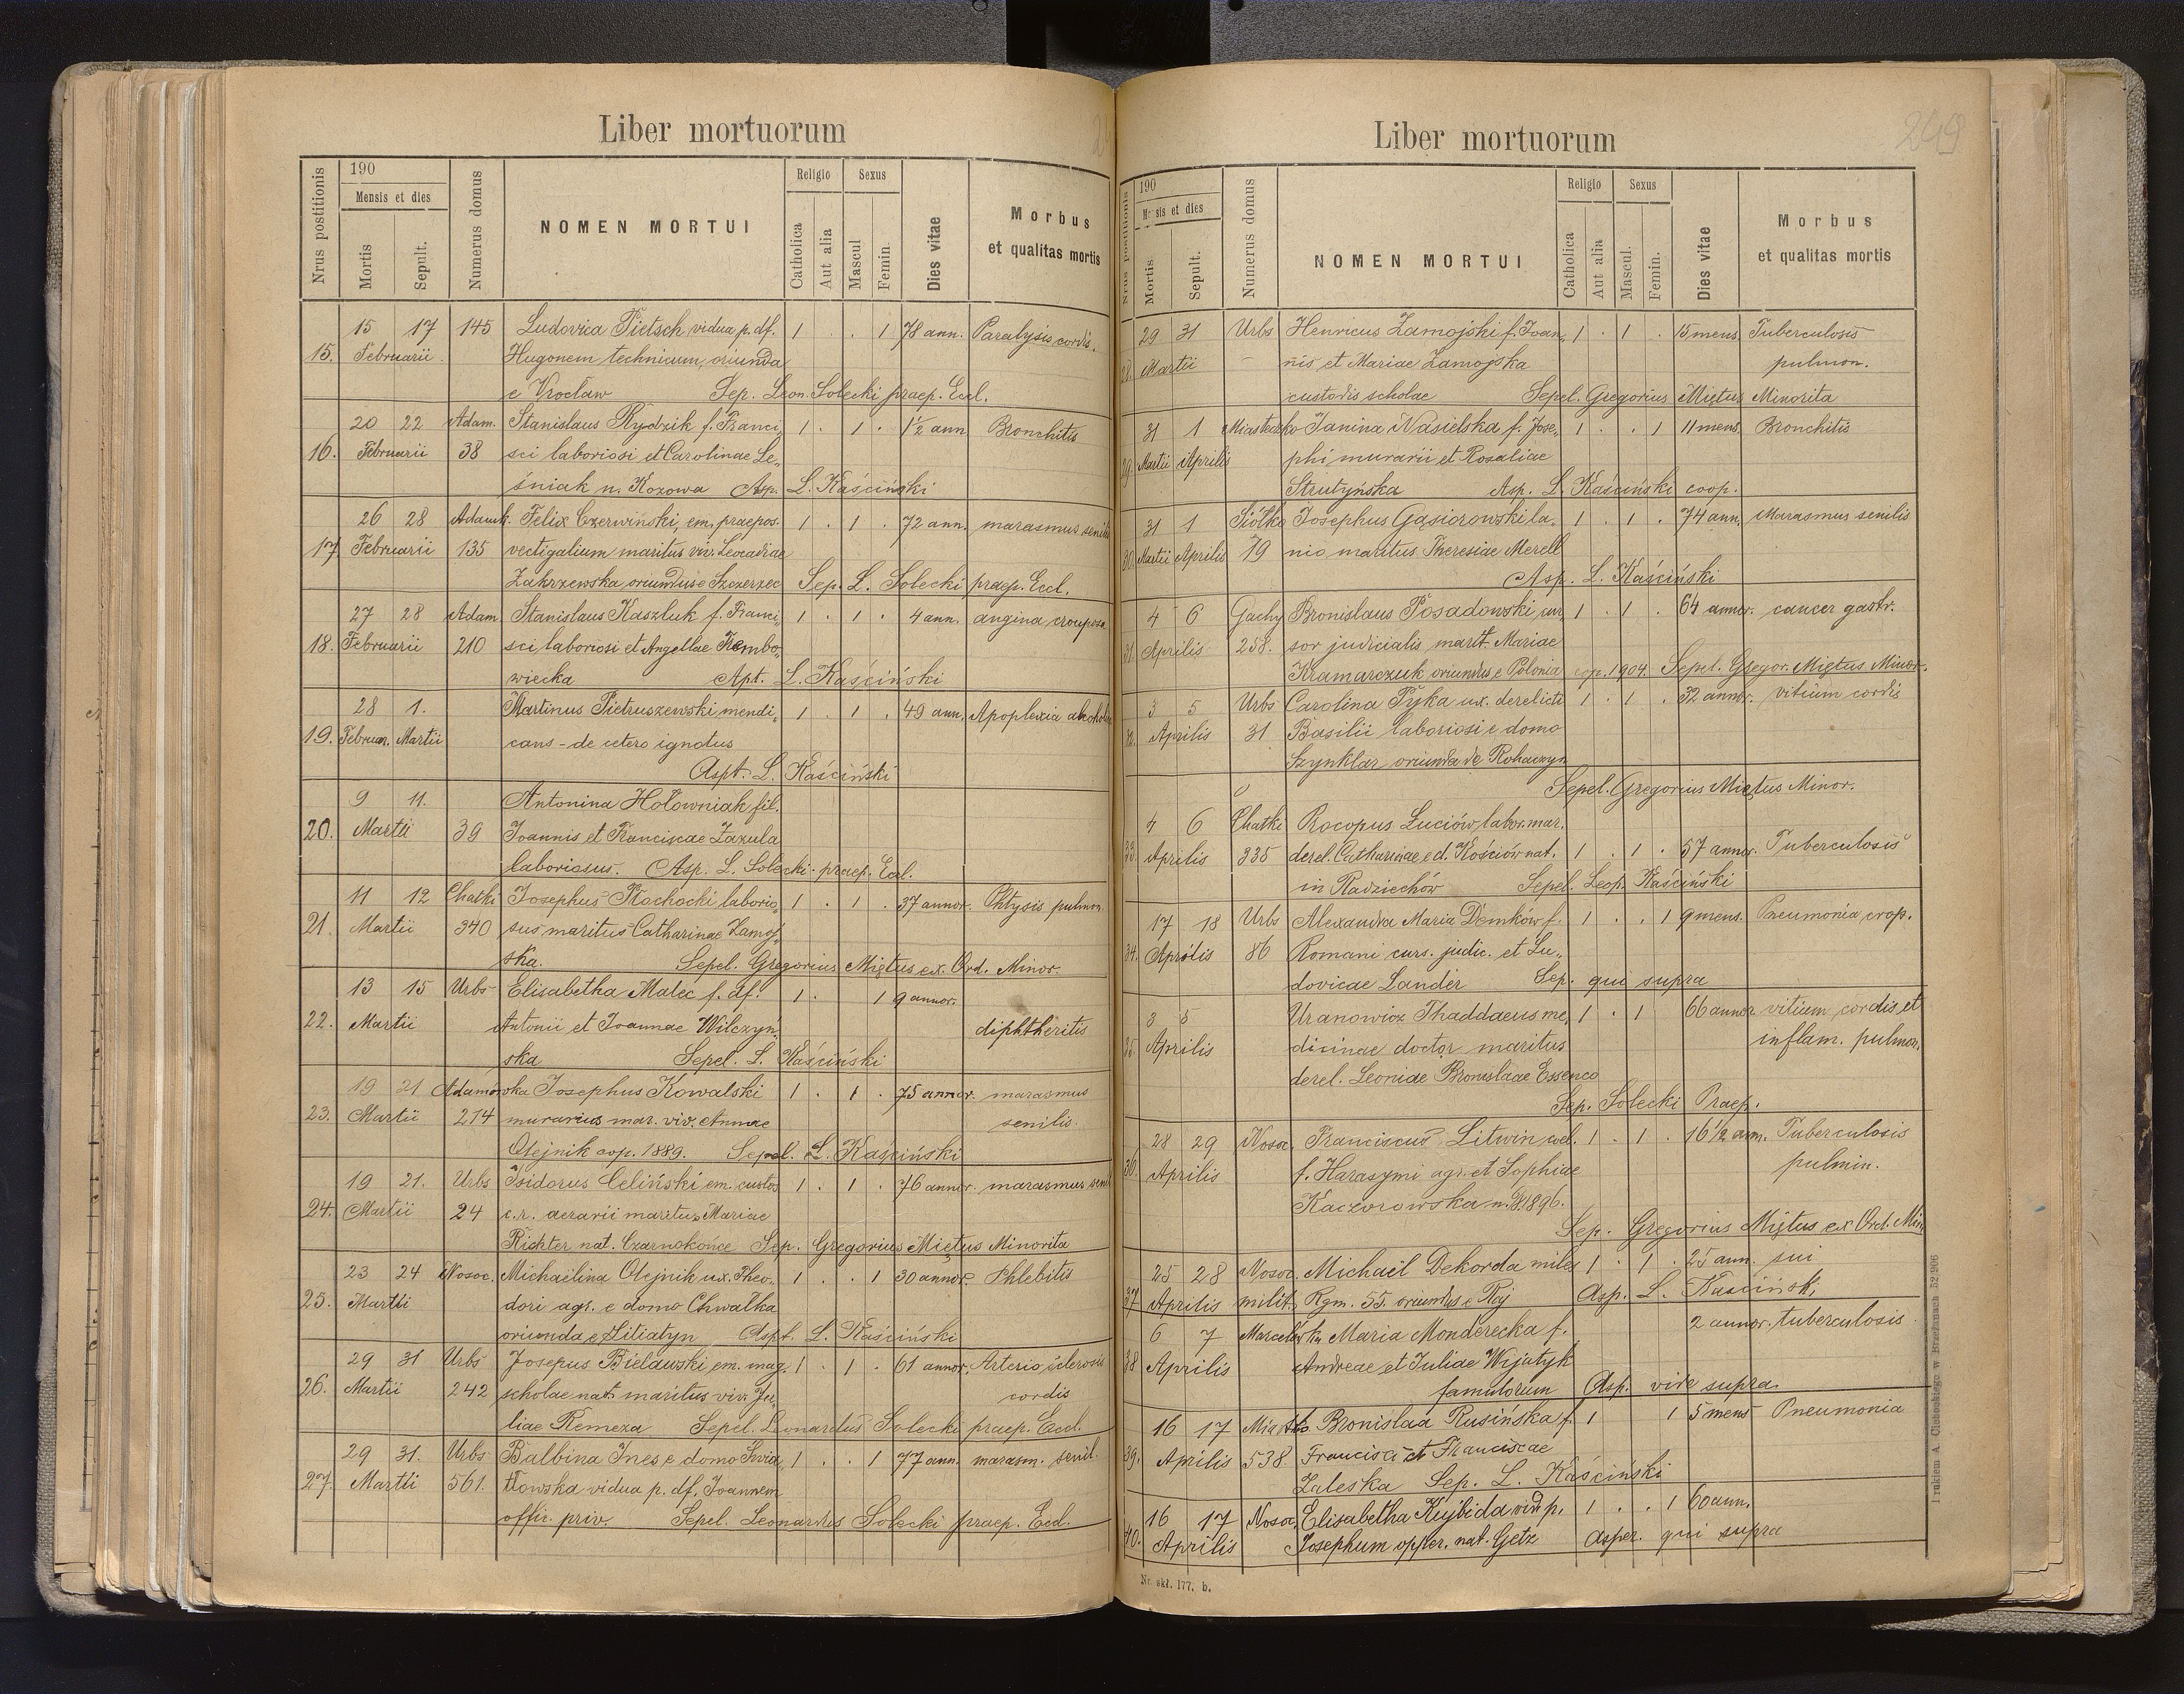 Liber mortuorum
Nrus postitionis
190
Mensis et dies
Mortis
Sepult.
Numerus domus
NOMEN MORTUI
Religio
Catholica
Aut alia
Sexus
Mascul
Femin.
Dies vitae
Morbus
et qualitas mortis
15 17 145 Ludovica Pietsch vidua p. df. 1 . . 1 78 ann. Paralysis cordis.
15. Februarii Hugonem technicum, oriunda
e Vrocław Sep. Leon. Solecki praep. Eccl.
20 22 Adam. Stanislaus Rydzik f. Franci, 1 . 1 . 1 1/2 ann Bronchitis
16. Februarii 38 sci laboriosi et Carolinae Le,,
śniak n. Kozowa Asp. L. Kaściński
26 28 Adamk. Felix Czerwiński, em. praepos. 1 . 1 . 72 ann. marasmus senilis
17 Februarii 135 vectigalium maritus viv. Leocadiae
Zakrzewska oriundus e Szczerzec Sep. L. Solecki praep. Eccl.
27 28 Adam Stanislaus Kaszluk f. Franci, 1 . 1 . 4 ann. angina crouposa
18. Februarii 210 sci laboriosi et Angellae Trembo,,
wiecka Apt. L. Kaściński
28 1. Martinus Pietruszewski mendi, 1 . 1 . 49 ann. Apoplexia
19. Februar. Martii cans - de cetero ignotus
Aspt. L. Kaściński
9 11. Antonina Hołowniak fil.
20. Martii 39 Joannis et Franciscae Zazula
laboriosus. Asp. L. Solecki praep. Ecl.
11 12 Chatki Josephus Kochocki laborio, 1 . 1 . 37 annor. Phtysis pulmon.
21. Martii 340 sus maritus Catharinae Zamoj,
ska. Sepel. Gregorius Miętus ex. Ord. Minor.
13 15 Urbs Elisabetha Malec f. df. 1 . 1 9 annor.
22. Martii Antonii et Joannae Wilczyń, diphtheritis
ska Sepel. L. Kaściński
19 21 Adamówka Josephus Kowalski 1 . 1 . 75 annor. marasmus
23. Martii 274 murarius mar. viv. Annae senilis.
Olejnik cop. 1889. Sepel. L. Kaściński
19 21. Urbs Isidorus Celiński em. custos 1 . 1 . 76 annor. marasmus
24. Martii 24 c.r. aerarii maritus Mariae
Richter nat. Czarnokońce Sep. Gregorius Miętus Minorita
23 24 Nosoc. Michaëlina Olejnik ux. Theo, 1 . . 1 30 annor. Phlebitis
25. Martii dori agr. e domo Chwałka
oriunda e Litiatyn Aspt. L. Kaściński
29 31 Urbs Josepus Bielawski em. mag. 1 . 1 . 61 annor. Arterio sclerosis
26. Martii 242 scholae nat. maritus viv. Ju, cordis
liae Remeza Sepel. Leonardus Solecki praep. Eccl.
29 31. Urbs Balbina Ines e domo Świą, 1 . . 1 77 ann. marasm. senil.
27. Martii 561. tkowska vidua p. df. Joannem
offic. priv. Sepel. Leonardus Solecki praep. Eccl.
Liber mortuorum
249
Nrus postitionis
190
Mensis et dies
Mortis
Sepult.
Numerus domus
NOMEN MORTUI
Religio
Catholica
Aut alia
Sexus
Mascul.
Femin.
Dies vitae
Morbus
et qualitas mortis
29 31 Urbs Henricus Zamojski f. Joan, 1 . 1 . 15 mens. Tuberculosis
28. Martii - nis et Mariae Zamojska pulmon.
custodis scholae Sepel. Gregorius Miętus Minorita
31 1 Miasteczko Janina Nasielska f. Jose, 1 . . 1 11 mens. Bronchitis
29. Martii Aprilis phi murarii et Rosaliae
Strutyńska Asp. L. Kaściński coop.
31 1 Siółko Josephus Gąsiorowski la, 1 . 1 . 74 ann. Marasmus senilis
30. Martii Aprilis 79 nio maritus Theresiae Merell
Asp. L. Kaściński
4 6 Gachy Bronislaus Posadowski cur, 1 . 1 . 64 annor. cancer gastr.
31. Aprilis 258. sor judicialis marit. Mariae
Kramarczuk oriundus e Polonia cop. 1904. Sepel. Gregor. Miętus Minor.
3 5 Urbs Carolina Pyka ux. derelicti 1 . 1 . 32 annor. vitium cordis
32. Aprilis 31 Basilii laboriosi e domo
Szynklar oriunda de Rohaczyn
Sepel. Gregorius Miętus Minor.
4 6 Chatki Rocopus Luciów labor. mar.
33. Aprilis 335 derel. Catharinae e d. Kościów nat. 1 . 1 . 57 annor. Tuberculosis
in Radziechów Sepel. Leop. Kaściński
17 18 Urbs Alexandra Maria Demków f. 1 . . 1 9 mens. Pneumonia crop.
34. Aprilis 86 Romani curs. judic. et Lu,,
dovicae Lander Sep. qui supra
3 5 Uranowicz Thaddaeus me, 1 . 1 66 annor vitium cordis et
35. Aprilis dicinae doctor maritus inflam. pulmon.
derel. Leoniae Bronislaae Essenco
Sep. Solecki Praep.
28 29 Nosoc. Franciscus Litwin coel. 1 . 1 . 16 1/2 ann. Tuberculosis
36. Aprilis f. Harasymi agr. et Sophiae pulmin.
Kaczorowska n. 8. 1896.
Sep. Gregorius Miętus ex Ord. Min
25 28 Nosoc. Michaël Dekorda miles 1 . 1 . 25 ann. sui
37 Aprilis milit. Rgm. 55. oriundus e Roj Asp. L. Kaściński
6 7 Marcelówka Maria Monderecka f. 2 annor. tuberculosis
38 Aprilis Andreae et Juliae Wijatyk
famulorum Asp. vide supra.
16 17 Miasto Bronislaa Rusińska f. 1 1 5 mens Pneumonia
39. Aprilis 538 Francisci et Franciscae
Zaleska Sep. L. Kaściński
16 17 Nosoc. Elisabetha Kujbida vid. p. 1 . . 1 60 ann.
40. Aprilis Josephum opfer. nat. Getz Asper. qui supra
Nr. skł. 177. b.